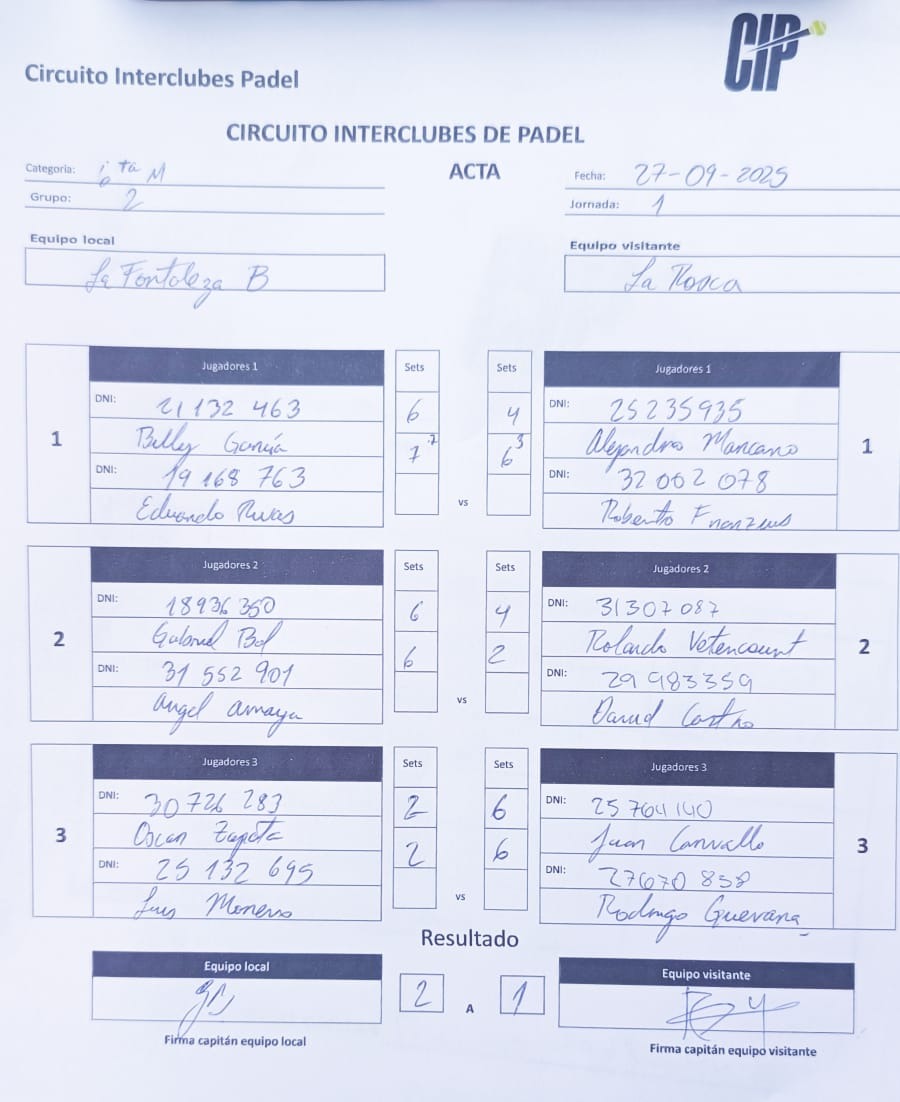 CIP
Circuito Interclubes Padel
CIRCUITO INTERCLUBES DE PADEL
Categoria: 6ta M
ACTA
Fecha: 27-09-2025
Grupo: 2
Jornada: 1
Equipo local
Equipo visitante
La Fortaleza B
La Rosca
Jugadores 1 Sets Sets Jugadores 1
DNI: 21 132 463 6 4 DNI: 25235935
1 Billy García 7 7 6 3 Alejandro Mancano 1
DNI: 19 168 763 DNI: 32 002 078
vs
Eduardo Rivas Roberto
Jugadores 2 Sets Sets Jugadores 2
DNI: 18936 350 6 4 DNI: 31307 087
2 Gabriel Bal 6 2 Rolando Vetencourt 2
DNI: 31 552 901 DNI: 29 983359
vs
Angel Amaya David Castro
Jugadores 3 Sets Sets Jugadores 3
DNI: 30 726 283 2 6 DNI: 25 764 140
3 Oscar Zapata 2 6 Juan Carvallo 3
DNI: 25 132 695 DNI: 27670 838
vs
Luis Moreno Rodrigo Guevara
Resultado
Equipo local 2 A 1 Equipo visitante
Firma capitán equipo local
Firma capitán equipo visitante